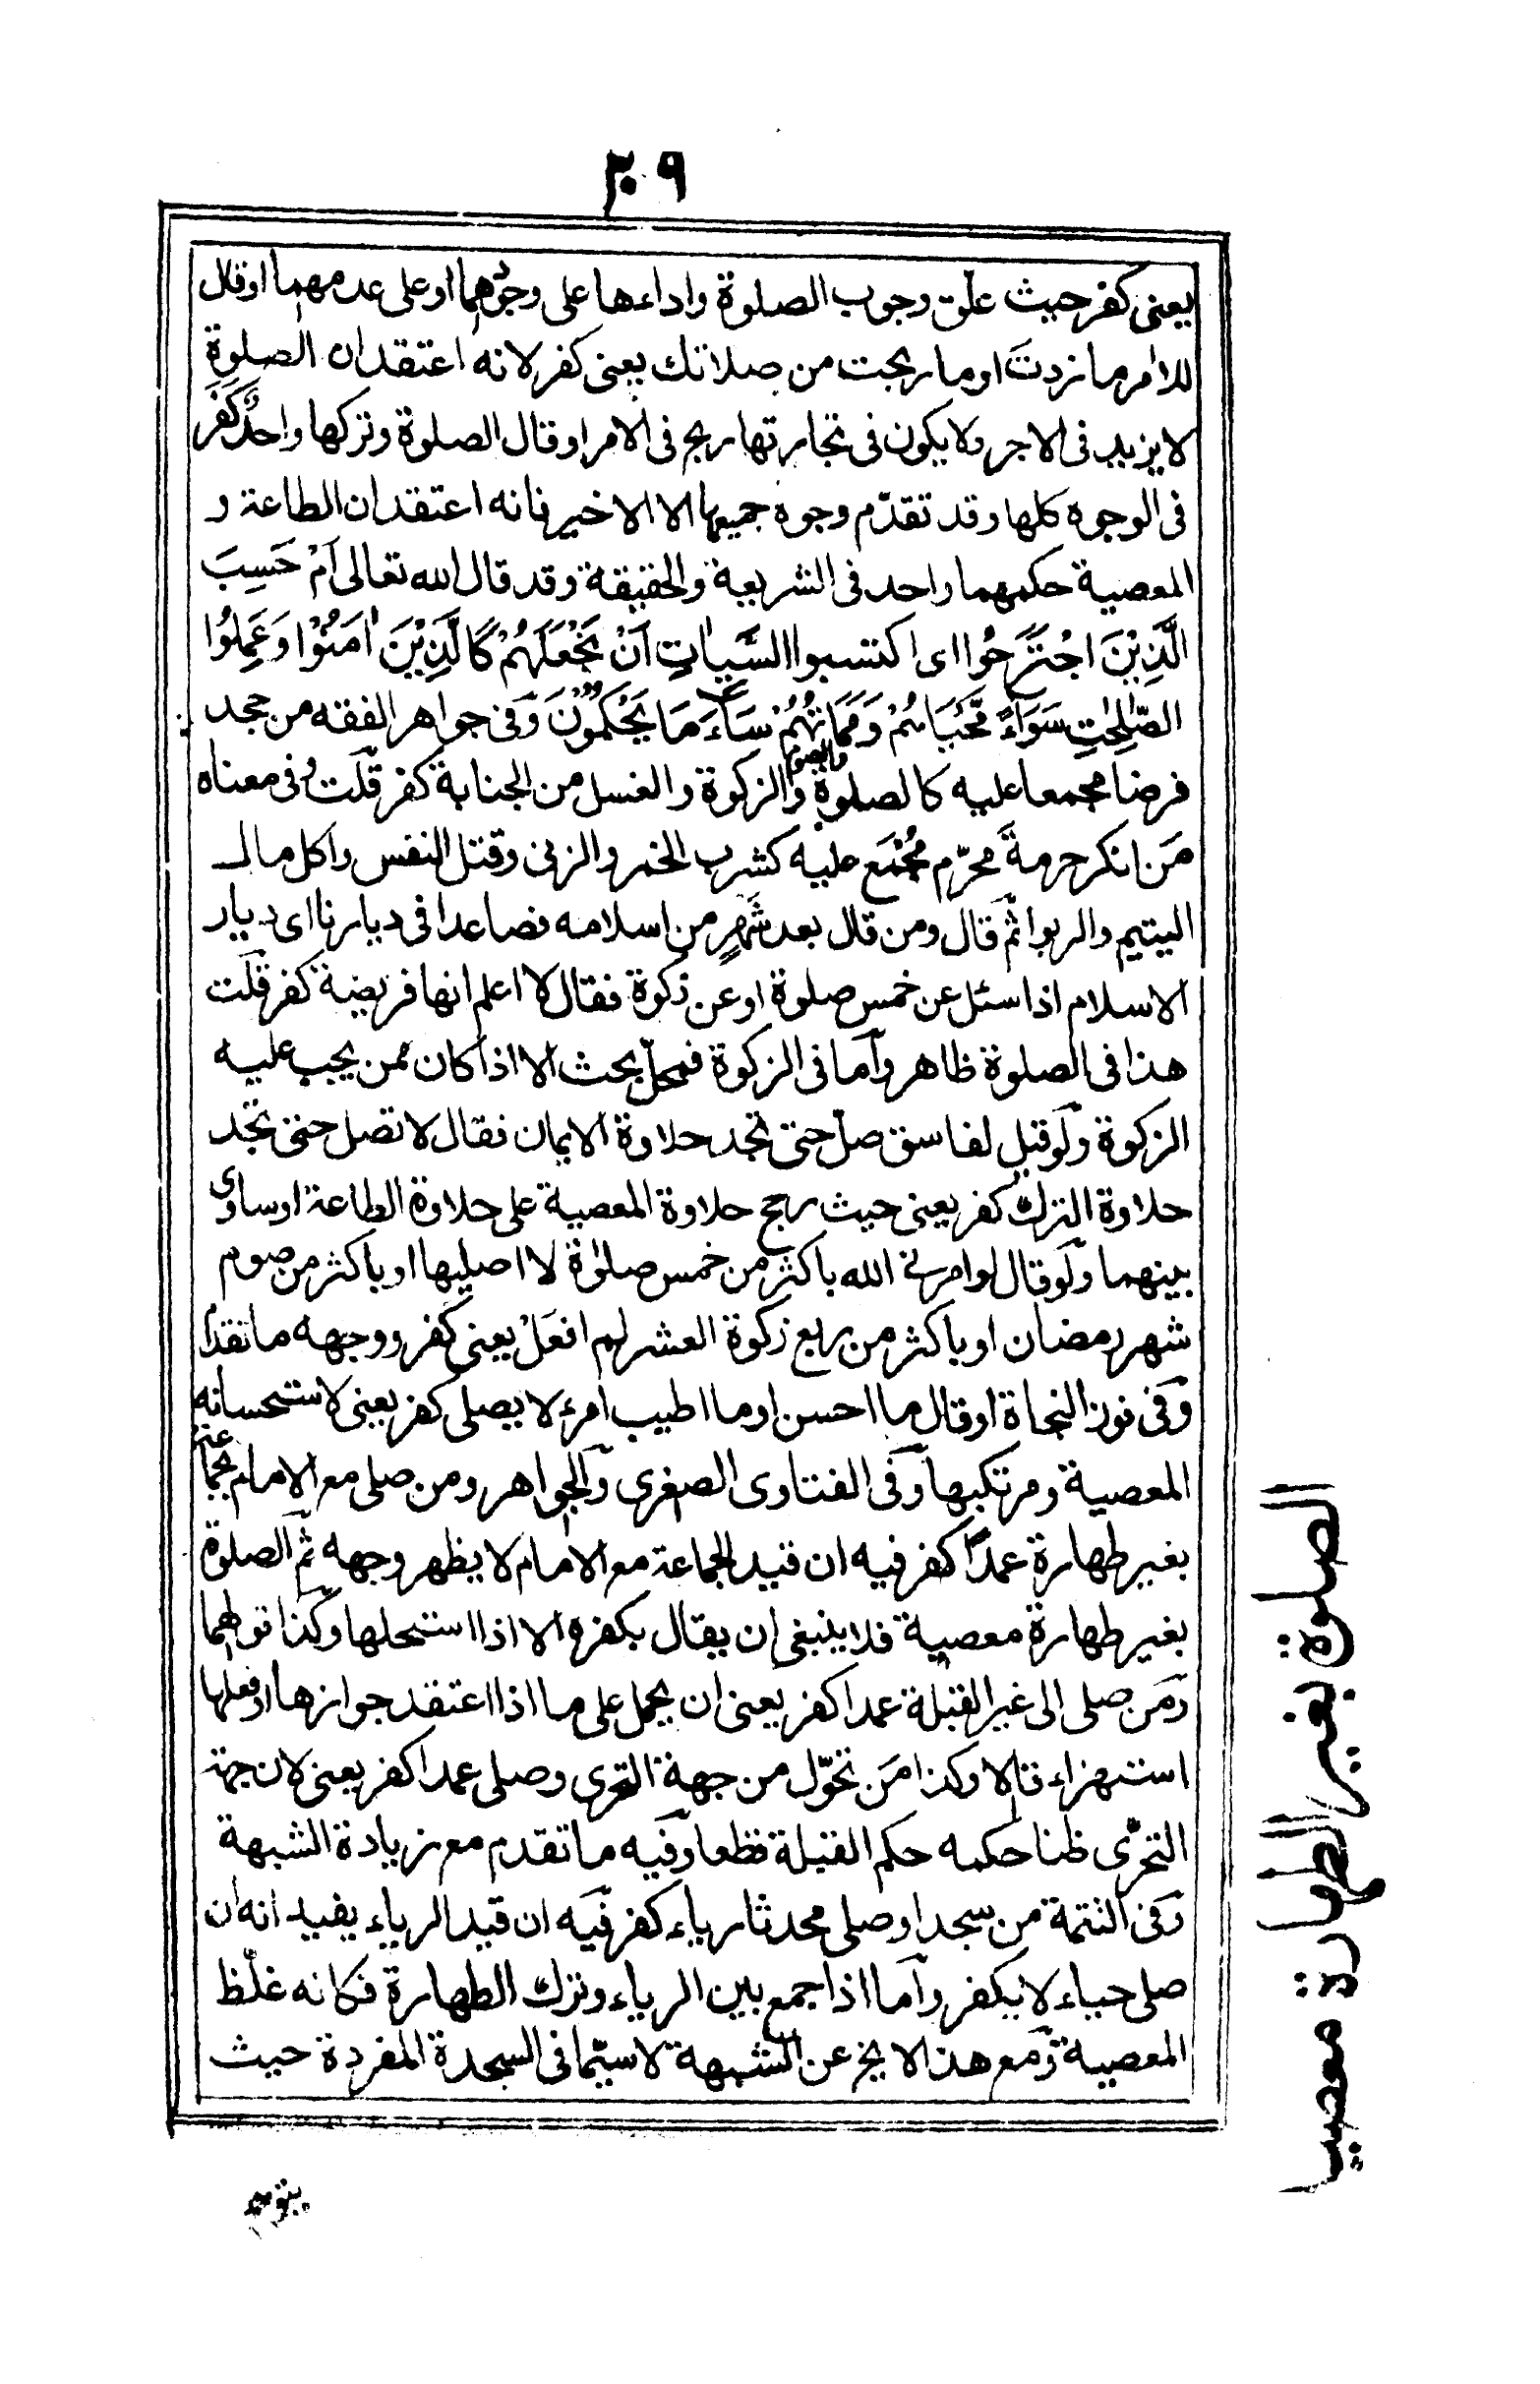 ٢٠٩
يعنى كفر حيث علق وجوب الصلوة واداءها على وجودهما او على عدمهما او قال
للامر ما زدت او ما ربحت من صلاتك يعنى كفر لانه اعتقد ان الصلوة
لا يزيد فى الاجر ولا يكون فى تجارتها ربح فى الامر او قال الصلوة وتركها واحدٌ كَفَرَ
فى الوجوه كلها وقد تقدّم وجوه جميعها الا الاخير فانه اعتقد ان الطاعة و
المعصية حكمهما واحد فى الشريعة والحقيقة وقد قال الله تعالى اَمْ حَسِبَ
الَّذِيْنَ اجْتَرَحُوا اى اكتسبوا السَّيِّاٰتِ اَنْ نَجْعَلَهُمْ كَالَّذِيْنَ اٰمَنُوْا وَعَمِلُوا
الصّٰلِحٰتِ سَوَاءً مَّحْيَاهُمْ وَمَمَاتُهُمْ سَاءَ مَا يَحْكُمُوْنَ وفى جواهر الفقه من جحد
فرضا مجمعا عليه كالصلوة والصوم والزكوة والغسل من الجنابة كفر قلت وفى معناه
مَن انكر حرمةَ محرّم مُجْمَع عليه كشرب الخمر والزنى وقتل النفس واكل مال
اليتيم والربوا ثم قال ومن قال بعد شَهرٍ من اسلامه فصاعدا فى ديارنا اى ديار
الاسلام اذا سئل عن خمس صلوة او عن زكوة فقال لا اعلم انها فريضة كفر قلت
هذا فى الصلوة ظاهر واما فى الزكوة فمحل بحث الا اذا كان ممن يجب عليه
الزكوة ولو قيل لفاسق صلّ حتى تجد حلاوة الايمان فقال لا تصل حتى تجد
حلاوة الترك كفر يعنى حيث رجح حلاوة المعصية على حلاوة الطاعة او ساوى
بينهما ولو قال لو امرنى الله باكثر من خمس صلوٰة لا اصليها او باكثر من صوم
شهر رمضان او باكثر من ربع زكوة العشر لم افعَلْ يعنى كفر ووجهه ما تقدم
وفى فوز النجاة او قال ما احسن او ما اطيب امرء لا يصلى كفر يعنى لاستحسانه
المعصية ومرتكبها وفى الفتاوى الصغرى والجواهر ومن صلى مع الامام بجماعة
بغير طهارة عمدًا كفر فيه ان قيد الجماعة مع الامام لا يظهر وجهه ثم الصلوة
بغير طهارة معصية فلا ينبغى ان يقال بكفره الا اذا استحلها وكذا قولهما
ومَن صلى الى غير القبلة عمدا كفر يعنى ان يحمل على ما اذا اعتقد جوازها او فعلها
استهزاء قالا وكذا مَن تحوّل من جهة التحرى وصلى عمدا كفر يعنى لان جهة
التحرّى ظنا حكمه حكم القبلة قطعا وفيه ما تقدم مع زيادة الشبهة
وفى التتمة من سجد او صلى محدثا رياء كفر فيه ان قيد الرياء يفيد انه ان
صلى حياء لا يكفر واما اذا جمع بين الرياء وترك الطهارة فكانه غلّظ
المعصية ومع هذا لا يخ عن الشبهة لا سيّما فى السجدة المفردة حيث
الصلوة بغير الطهارة معصية